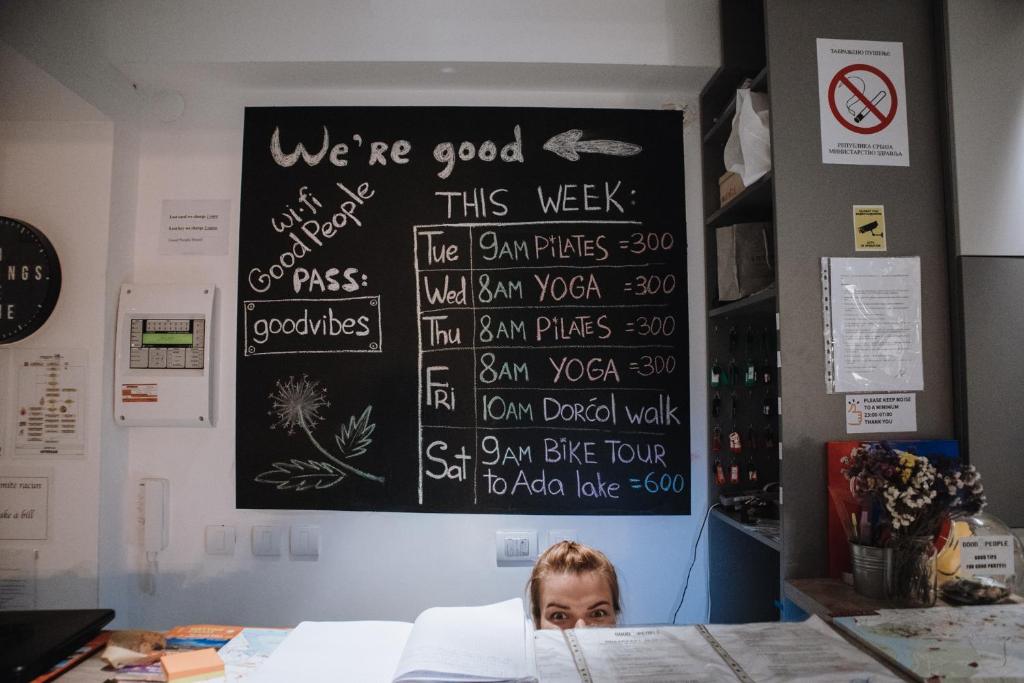 We're good
wi.fi
Good People
PASS:
goodvibes
THIS WEEK:
Tue 9AM PILATES =300
Wed 8AM YOGA =300
Thu 8AM PILATES =300
Fri 8AM YOGA =300
10AM Dorćol walk
Sat 9AM BIKE TOUR
to Ada lake =600
ЗАБРАЊЕНО ПУШЕЊЕ
РЕПУБЛИКА СРБИЈА
МИНИСТАРСТВО ЗДРАВЉА
PLEASE KEEP NOISE
TO A MINIMUM
23:00-07:00
THANK YOU
GOOD PEOPLE
GOOD TIPS
FOR GOOD PARTY!!
NGS
mite racun
ake a bill
GOOD PEOPLE